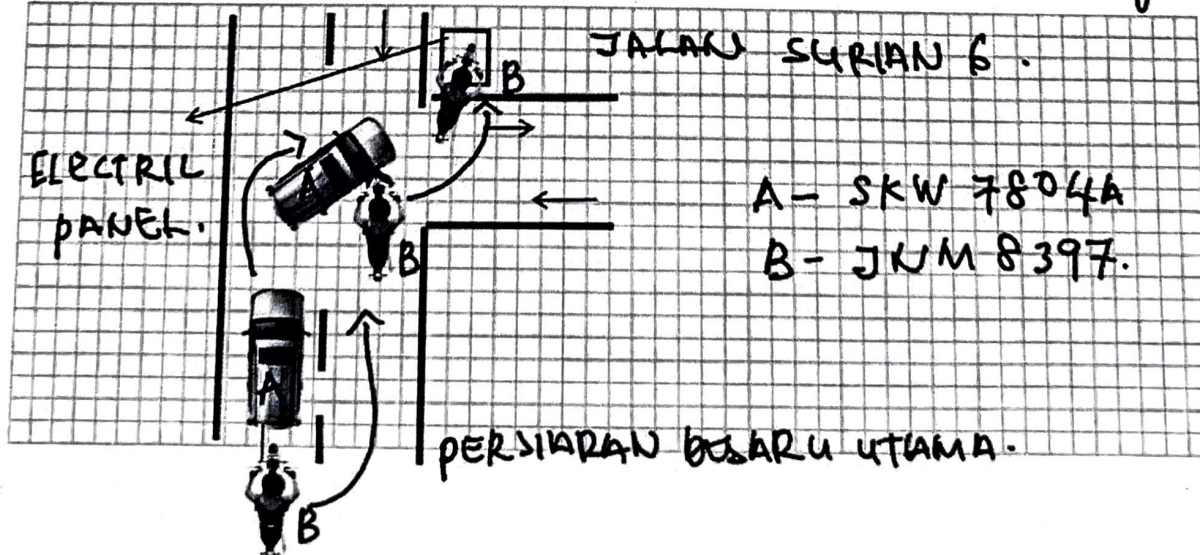 JALAN SURIAN 6.
B
ELECTRIL
PANEL.
A
B
A - SKW 7804A
B - JNM 8397.
A
PERSIARAN BESARU UTAMA.
B